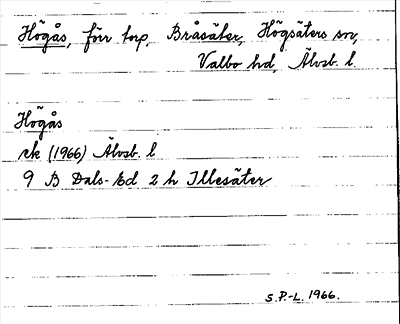 Högås, förr torp, Bråsäter, Högsäters sn,
Valbo hd, Älvsb. l.
Högås
ek (1966) Älvsb. l
9 B Dals-Ed 2 h Illesäter
S.P.-L. 1966.